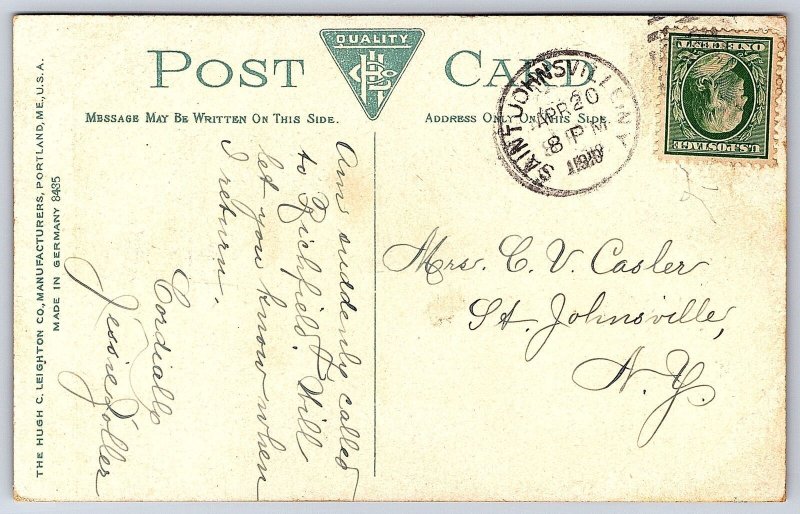 POST CARD
QUALITY
MESSAGE MAY BE WRITTEN ON THIS SIDE.
ADDRESS ONLY ON THIS SIDE.
SAINT JOHNSVILLE N.Y.
APR 20
8 PM
ONE CENT
U.S. POSTAGE
THE HUGH C. LEIGHTON CO., MANUFACTURERS, PORTLAND, ME., U.S.A.
MADE IN GERMANY 8435
Am suddenly called
to Richfield. Will
let you know when
I return.
Cordially
Jessie Zoller
Mrs. C. V. Casler
St. Johnsville,
N.Y.